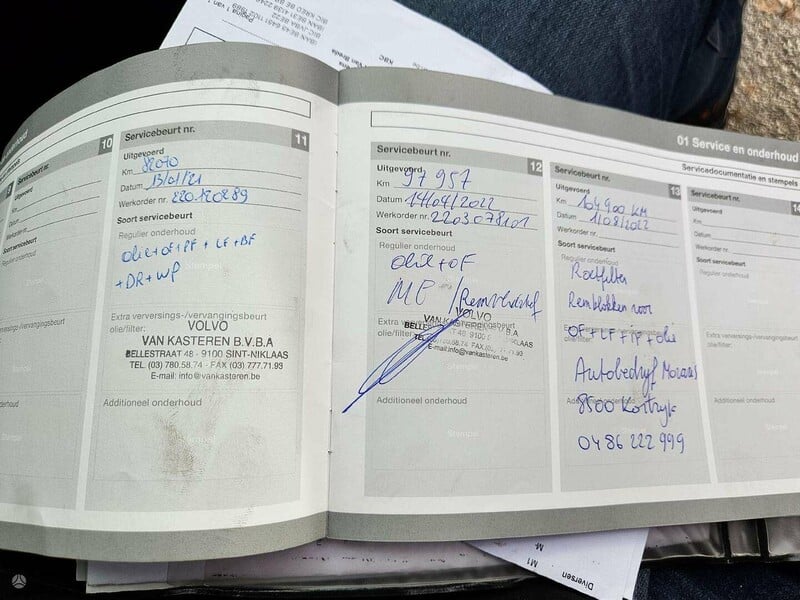 Pagina 1 van 1
KBC
01 Service en onderhoud
Servicedocumentatie en stempels
10
Servicebeurt nr.
11
Servicebeurt nr.
Uitgevoerd
Km 82070
Datum 13/01/21
Werkorder nr. 220120289
Soort servicebeurt
Regulier onderhoud
olie + oF + PF + LF + BF
+ DR + WP
Extra verversings-/vervangingsbeurt
olie/filter:
VOLVO
VAN KASTEREN B.V.B.A
BELLESTRAAT 48 - 9100 SINT-NIKLAAS
TEL (03) 780.58.74 - FAX (03) 777.71.99
E-mail: info@vankasteren.be
Additioneel onderhoud
Stempel
12
Servicebeurt nr.
Uitgevoerd
Km 97 957
Datum 14/04/2022
Werkorder nr. 2203078101
Soort servicebeurt
Regulier onderhoud
olie + oF
Extra verversings-/vervangingsbeurt
olie/filter:
VOLVO
E-mail: info@vankasteren.be
Additioneel onderhoud
Stempel
13
Servicebeurt nr.
Uitgevoerd
Km 104900 KM
Datum 1/08/2022
Werkorder nr.
Soort servicebeurt
Regulier onderhoud
Roetfilter
Remblokken voor
OF + LF + iF + olie
Autobedrijf
8500 Kortrijk
0486 222 999
14
Servicebeurt nr.
Uitgevoerd
Km
Datum
Werkorder nr.
Soort servicebeurt
Regulier onderhoud
Diversen
M1
M